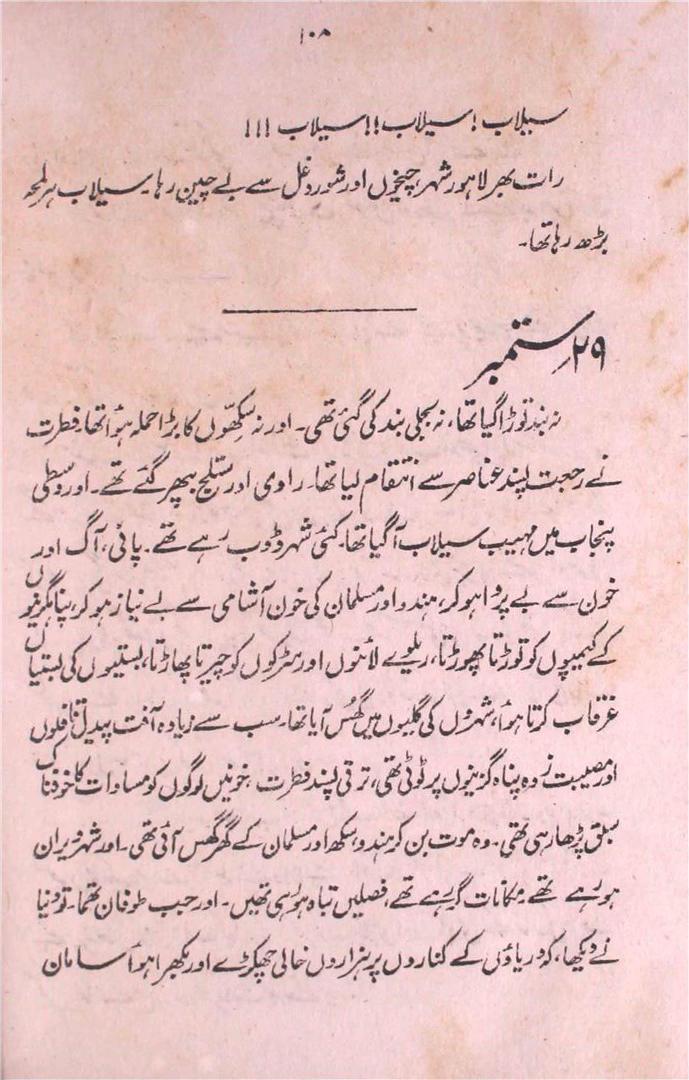 ۱۰۸
سیلاب! سیلاب!! سیلاب!!!
رات بھر لاہور شہر چیخوں اور شور و غل سے بے چین رہا۔ سیلاب ہر لمحہ
بڑھ رہا تھا۔
۲۹ ستمبر
نہ بند توڑا گیا تھا، نہ بجلی بند کی گئی تھی۔ اور نہ سکھّوں کا بڑا حملہ ہوأ تھا، فطرت
نے رجعت پسند عناصر سے انتقام لیا تھا۔ راوی اور ستلج بپھر گئے تھے۔ اور وسطی
پنجاب میں مہیب سیلاب آ گیا تھا۔ کئی شہر ڈوب رہے تھے۔ پانی، آگ اور
خون سے بے پروا ہو کر، ہندو اور مسلمان کی خون آشامی سے بے نیاز ہو کر، پناہ گزینوں
کے کیمپوں کو توڑتا پھوڑتا، ریلوے لائنوں اور سڑکوں کو چیرتا پھاڑتا، بستیوں کی بستیاں
غرقاب کرتا ہوأ، شہروں کی گلیوں میں گھُس آیا تھا۔ سب سے زیادہ آفت پیدل قافلوں
اور مصیبت زدہ پناہ گزینوں پر ٹوٹی تھی، ترقی پسند فطرت، خونیں لوگوں کو مساوات کا خوفناک
سبق پڑھا رہی تھی۔ وہ موت بن کر ہندو، سکھ اور مسلمان کے گھر گھس آئی تھی۔ اور شہر ویران
ہو رہے تھے۔ مکانات گر رہے تھے، فصلیں تباہ ہو رہی تھیں۔ اور جب طوفان تھما۔ تو دنیا
نے دیکھا، کہ دریاؤں کے کناروں پر ہزاروں خالی چھکڑے اور بکھرا ہوأ سامان